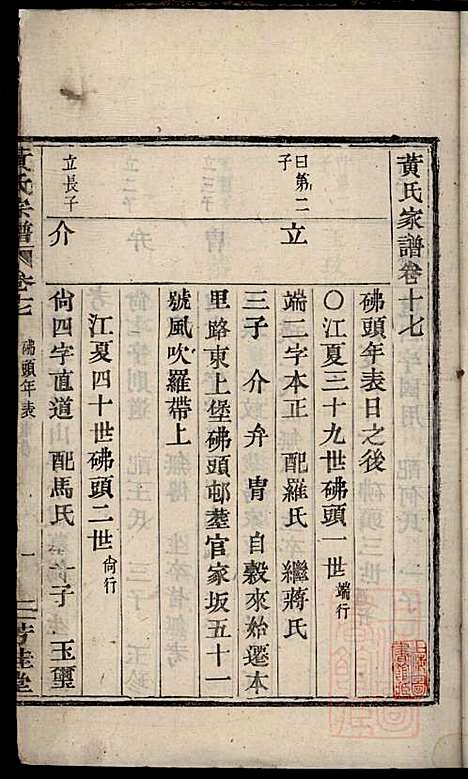 黄氏家譜卷十七
砩頭年表日之後
〇江夏三十九世砩頭一世端行
曰第二子
立
端二字本正 配羅氏 繼蔣氏
三子 介 弁 冑 自穀來始遷本
里路東上堡砩頭邨塟官家坂五十一
號風吹羅帶上
江夏四十世砩頭二世尙行
立長子
介
尙四字直道 配馬氏 二子 玉璽
黄氏宗譜 卷十七 砩頭年表 一 芳桂堂